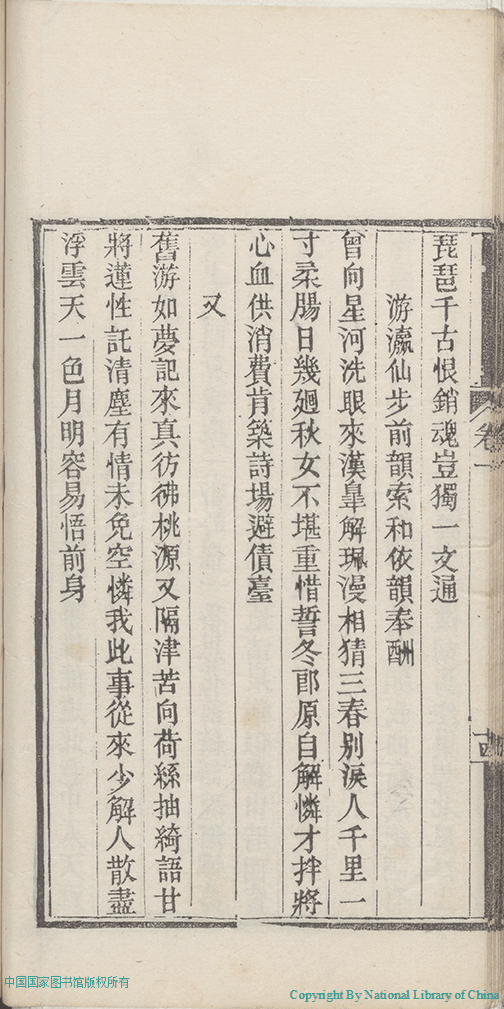 琵琶千古恨銷魂豈獨一文通
游瀛仙步前韻索和依韻奉酬
曾向星河洗眼來漢臯解珮漫相猜三春別淚人千里一
寸柔腸日幾廻秋女不堪重惜誓冬郎原自解憐才拌將
心血供消費肯築詩場避債臺
又
舊游如夢記來真彷彿桃源又隔津苦向荷絲抽綺語甘
將蓮性託清塵有情未免空憐我此事從來少解人散盡
浮雲天一色月明容易悟前身
卷一
中国国家图书馆版权所有
Copyright By National Library of China